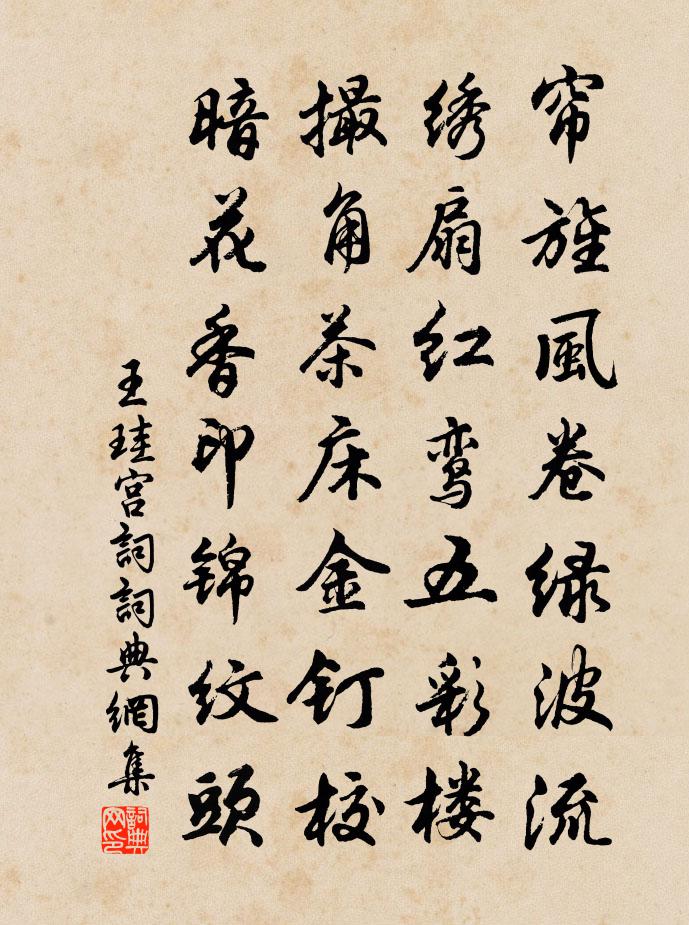 帘旌風卷绿波流
绣扇红鸾五彩楼
撮角茶床金钉校
暗花香印锦纹頭
王珪宫詞詞典網集
詞典网印